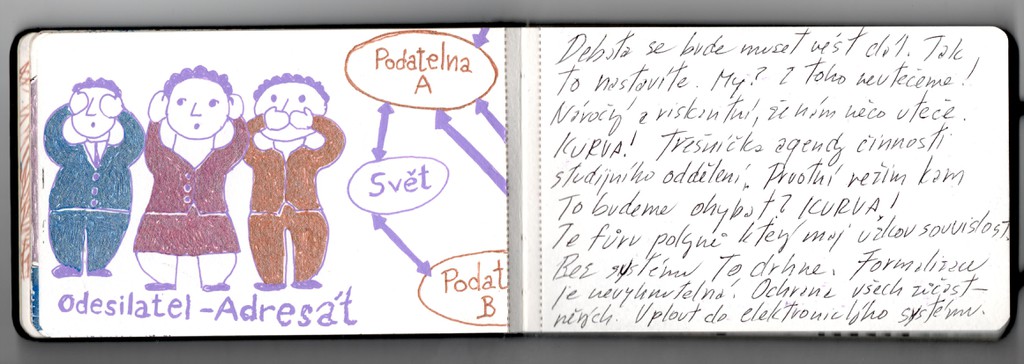 Podatelna
A
Svět
Podat
B
Odesilatel - Adresát
Debata se bude muset vést dál. Tak
to nastavíte. My? Z toho neutečeme!
Náročný a riskantní, že nám něco uteče.
KURVA! Třešnička agendy činnosti
studijního oddělení. Prvotní režim kam
To budeme ohýbat? KURVA!
Te fůru polygně který maj úzkou souvislost.
Bez systému To drhne. Formalizace
je nevyhnutelná. Ochrana všech zúčast-
něných. Vplout do elektronického systému.